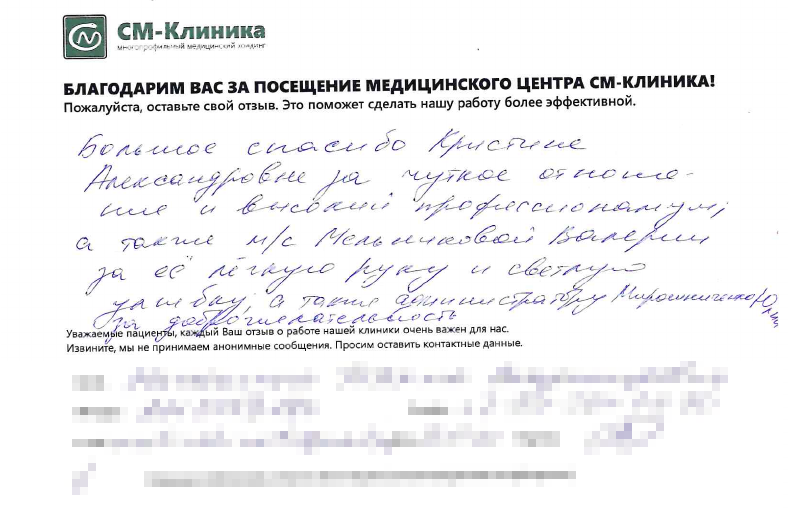 СМ-Клиника
многопрофильный медицинский холдинг
БЛАГОДАРИМ ВАС ЗА ПОСЕЩЕНИЕ МЕДИЦИНСКОГО ЦЕНТРА СМ-КЛИНИКА!
Пожалуйста, оставьте свой отзыв. Это поможет сделать нашу работу более эффективной.
Большое спасибо Кристине
Александровне за чуткое отноше-
ние и высокий профессионализм,
а также м/с Мельниковой Валерии
за её лёгкую руку и светлую
улыбку, а также администратору Мирошниченко Юлии
за доброжелательность
Уважаемые пациенты, каждый Ваш отзыв о работе нашей клиники очень важен для нас.
Извините, мы не принимаем анонимные сообщения. Просим оставить контактные данные.